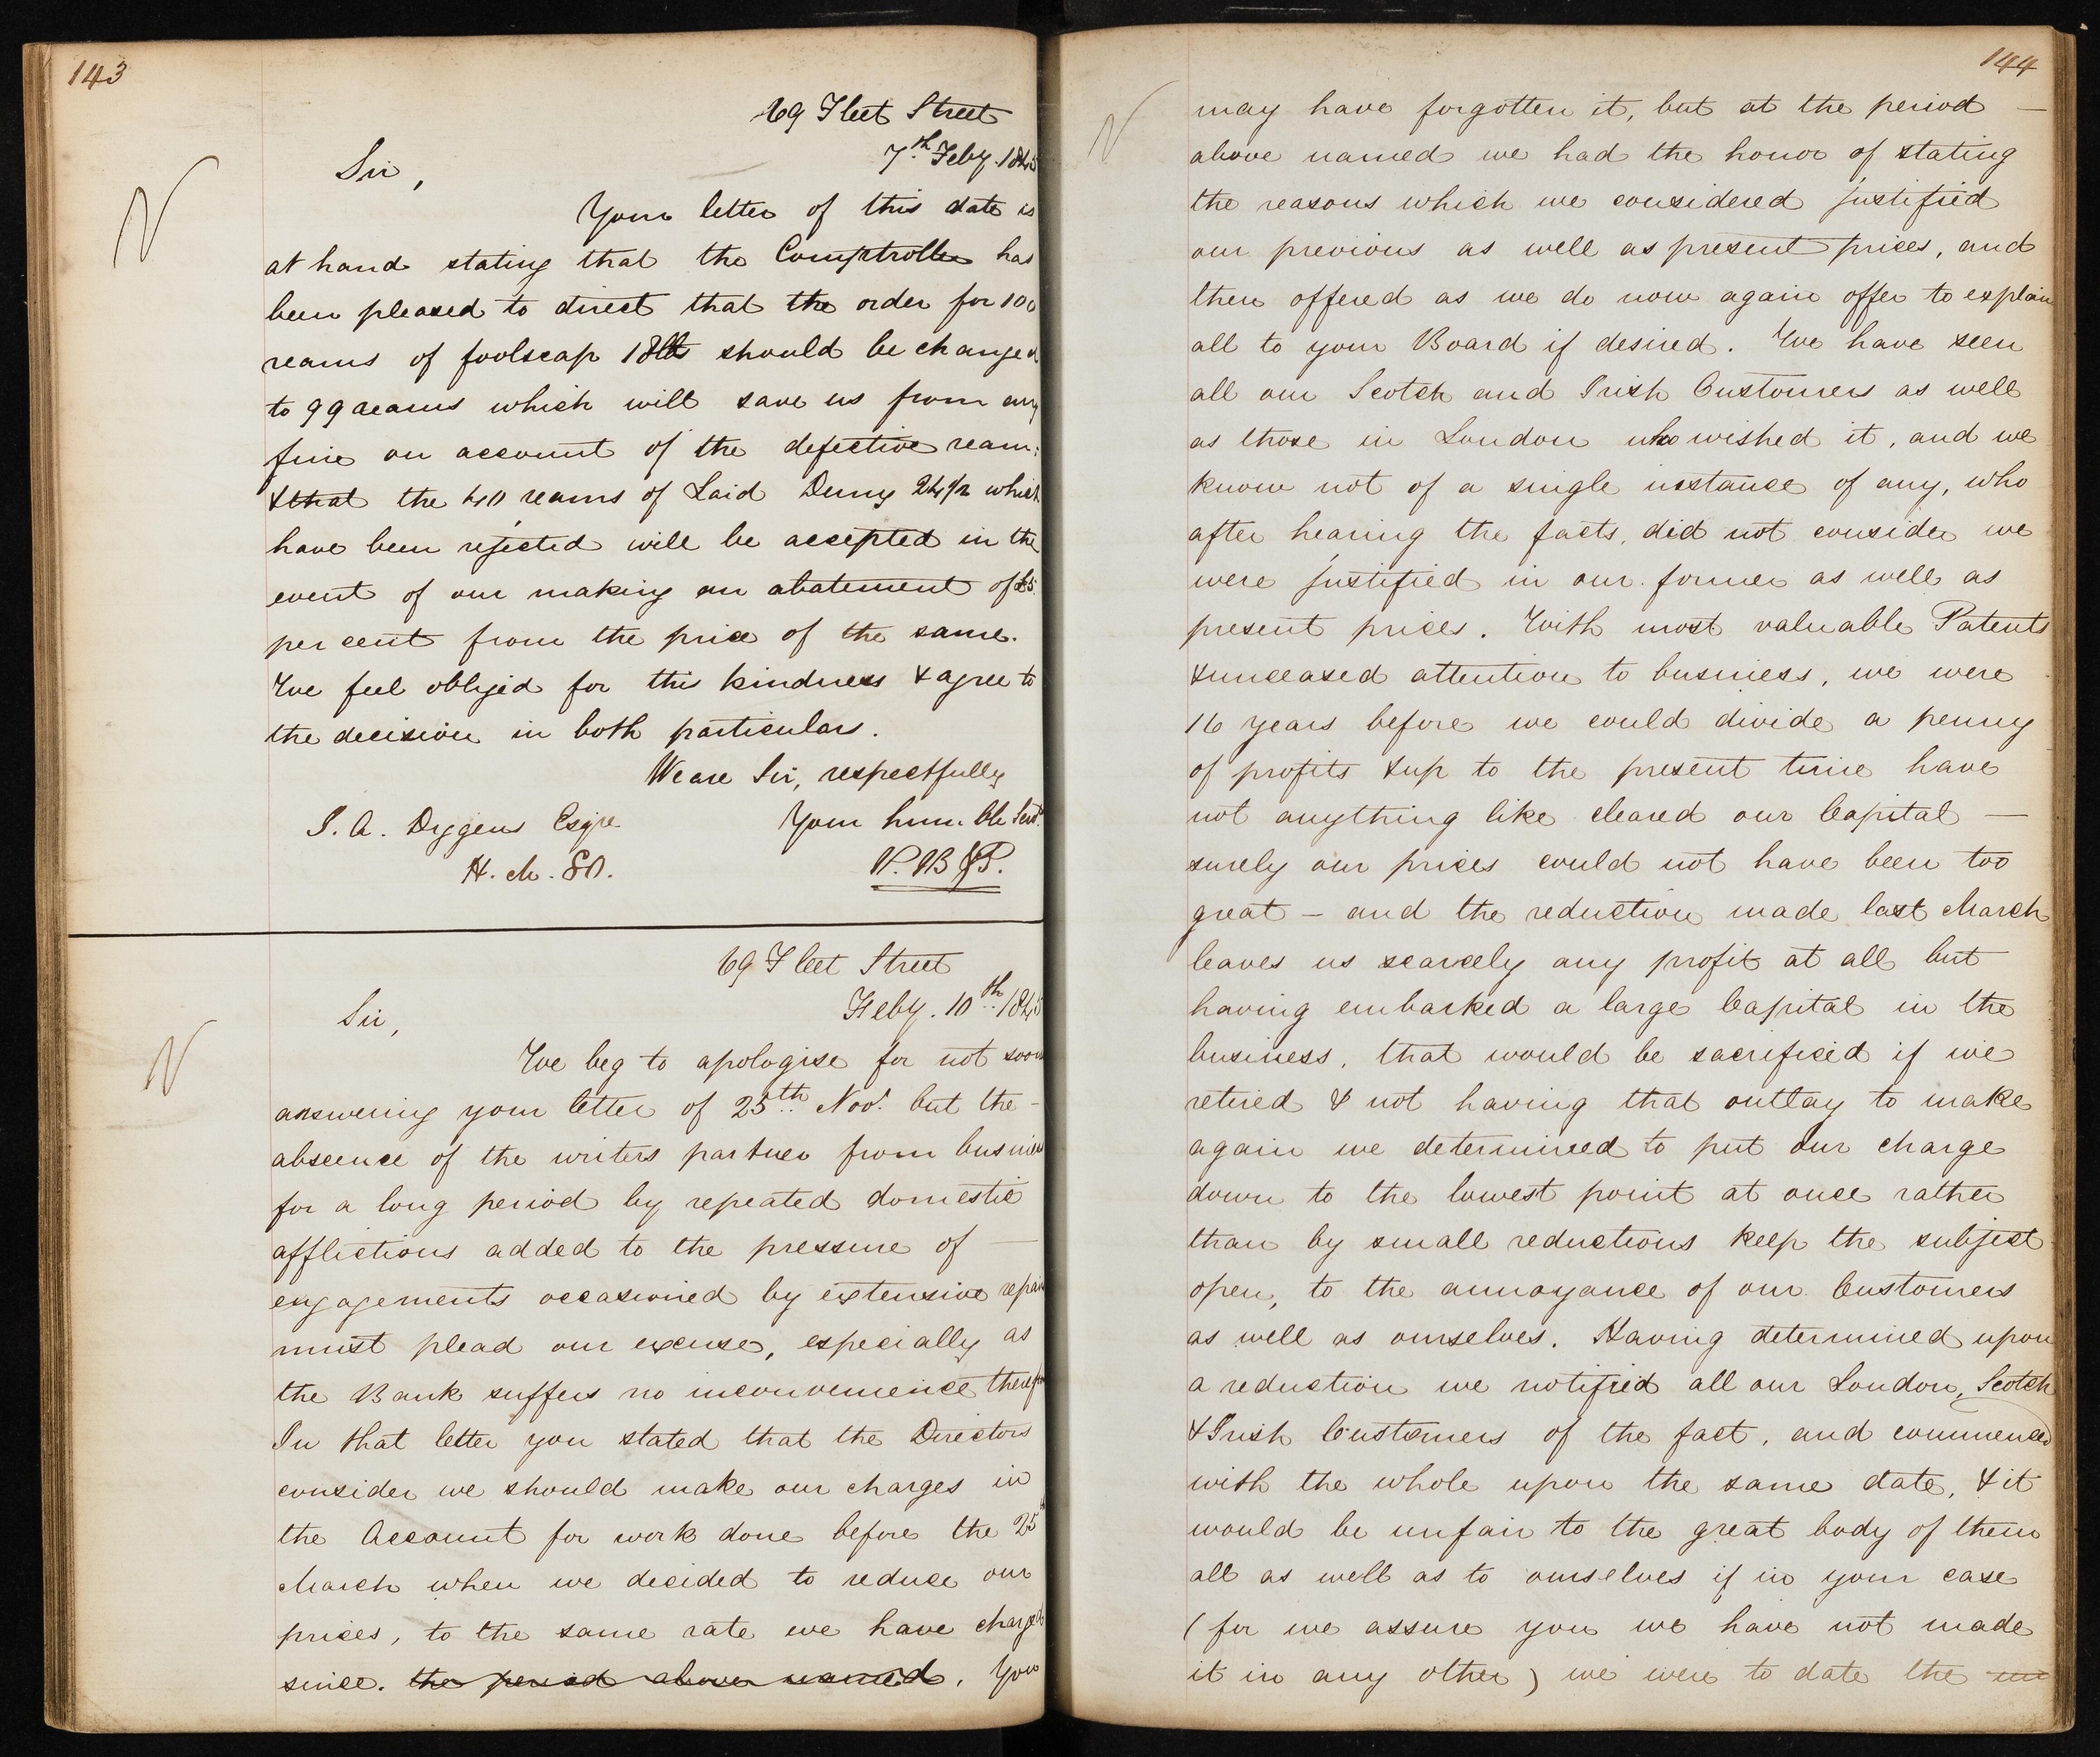 143
69 Fleet Street
7th Feby. 1845
Sir,
Your letter of this date is
at hand stating that the Comptroller has
been pleased to direct that the order for 100
reams of foolscap 18lbs should be changed
to 99 reams which will save us from any
fine on account of the defective ream;
& that the 40 reams of Laid Demy 24 1/2 which
have been rejected will be accepted in the
event of our making an abatement of £5.
per cent from the price of the same.
We feel obliged for this kindness & agree to
the decision in both particulars.
We are Sir, respectfully
Your humble Servt.
J. A. Dyggens Esqre
H. M. SO.
P. B & P.
69 Fleet Street
Feby. 10th 1845
Sir,
We beg to apologise for not sooner
answering your letter of 25th Novr. but the -
abscence of the writers partner from business
for a long period by repeated domestic
afflictions added to the pressure of —
engagements occasioned by extensive repairs
must plead our excuse, especially as
the Bank suffers no inconvenience therefrom
In that letter you stated that the Directors
consider we should make our charges in
the Account for work done before the 25th
March when we decided to reduce our
prices, to the same rate we have charged
since. the period above named. You
144
may have forgotten it, but at the period —
above named we had the honor of stating
the reasons which we considered justified
our previous as well as present prices, and
then offered as we do now again offer to explain
all to your Board if desired. We have seen
all our Scotch and Irish Customers as well
as those in London who wished it, and we
know not of a single instance of any, who
after hearing the facts, did not consider we
were justified in our former as well as
present prices. With most valuable Patents
& unceased attention to business, we were
16 years before we could divide a penny
of profits & up to the present time have
not anything like cleared our Capital —
surely our prices could not have been too
great - and the reduction made last March
leaves us scarcely any profit at all but
having embarked a large Capital in the
business, that would be sacrificed if we
retired & not having that outlay to make
again we determined to put our charge
down to the lowest point at once rather
than by small reductions keep the subject
open, to the annoyance of our Customers
as well as ourselves. Having determined upon
a reduction we notified all our London, Scotch
& Irish Customers of the fact, and commenced
with the whole upon the same date, & it
would be unfair to the great body of them
all as well as to ourselves if in your case
(for we assure you we have not made
it in any other) we were to date the